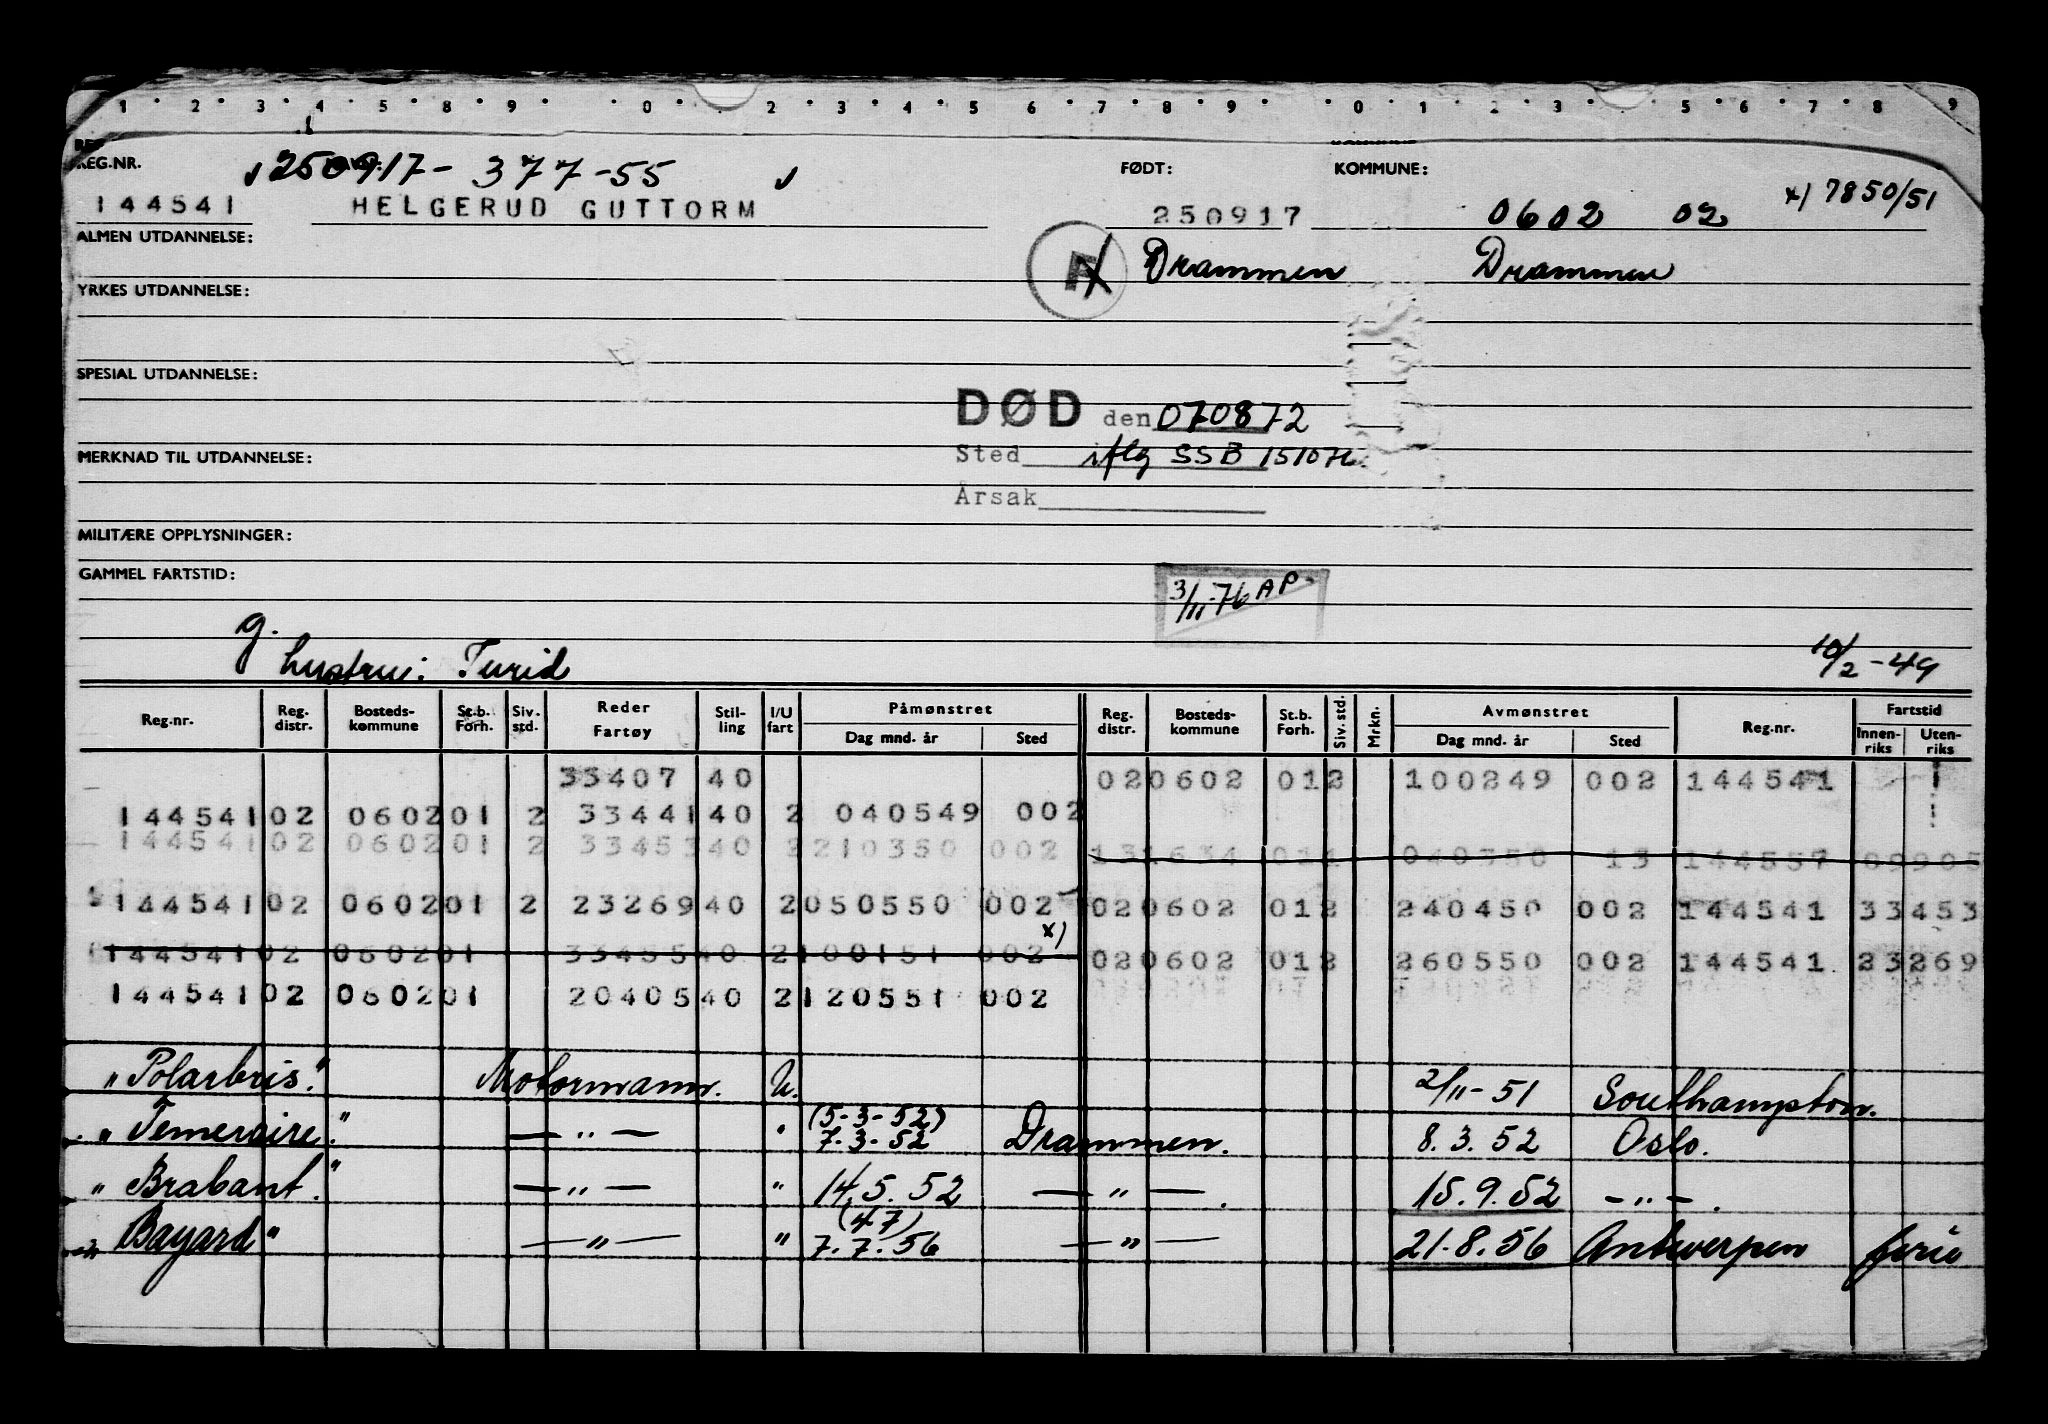 1 2 3 4 5 8 9 0 2 3 4 5 6 7 8 9 0 1 2 3 5 6 7 8 9
REG.NR. 250917- 377-55 FØDT: KOMMUNE: x) 7850/51
144541 HELGERUD GUTTORM 250917 0602 02
ALMEN UTDANNELSE: Drammen Drammen
YRKES UTDANNELSE:
SPESIAL UTDANNELSE:
DØD den 070872
MERKNAD TIL UTDANNELSE: Sted iflg SSB
Årsak
MILITÆRE OPPLYSNINGER:
GAMMEL FARTSTID:
3/11-76 AP
g.
hustru: Turid 10/2-49
Reg.nr. Reg. distr. Bosteds-kommune St.b. Forh. Siv. std. Reder Fartøy Stil-ling I/U fart Påmønstret Dag mnd. år Sted Reg. distr. Bosteds-kommune St.b. Forh. Siv. std. Mrkn. Avmønstret Dag mnd. år Sted Reg.nr. Fartstid Innen-riks Uten-riks
33407 40 02 0602 01 2 100249 002 144541
144541 02 0602 01 2 33441 40 2 040549 002
144541 02 0602 01 2 33453 40 2 210350 002 13 1634 01 1 040350 13 144557 09905
144541 02 0602 01 2 23269 40 2 050550 002 02 0602 01 2 240450 002 144541 33453
x)
144541 02 0602 01 33455 40 2 100151 002 02 0602 01 2 260550 002 144541 23269
144541 02 0602 01 20405 40 2 120551 002
"Polarbris." Motormann. U. 2/11-51 Southampton.
"Temeraire." — " — " (5-3-52) 7-3-52 Drammen. 8.3.52 Oslo.
"Brabant." — " — " 14.5.52 — " — . 15.9.52 — " — .
"Bayard" — " — " (4/7) 7.7.56 — " — 21.8.56 Antwerpen ferie